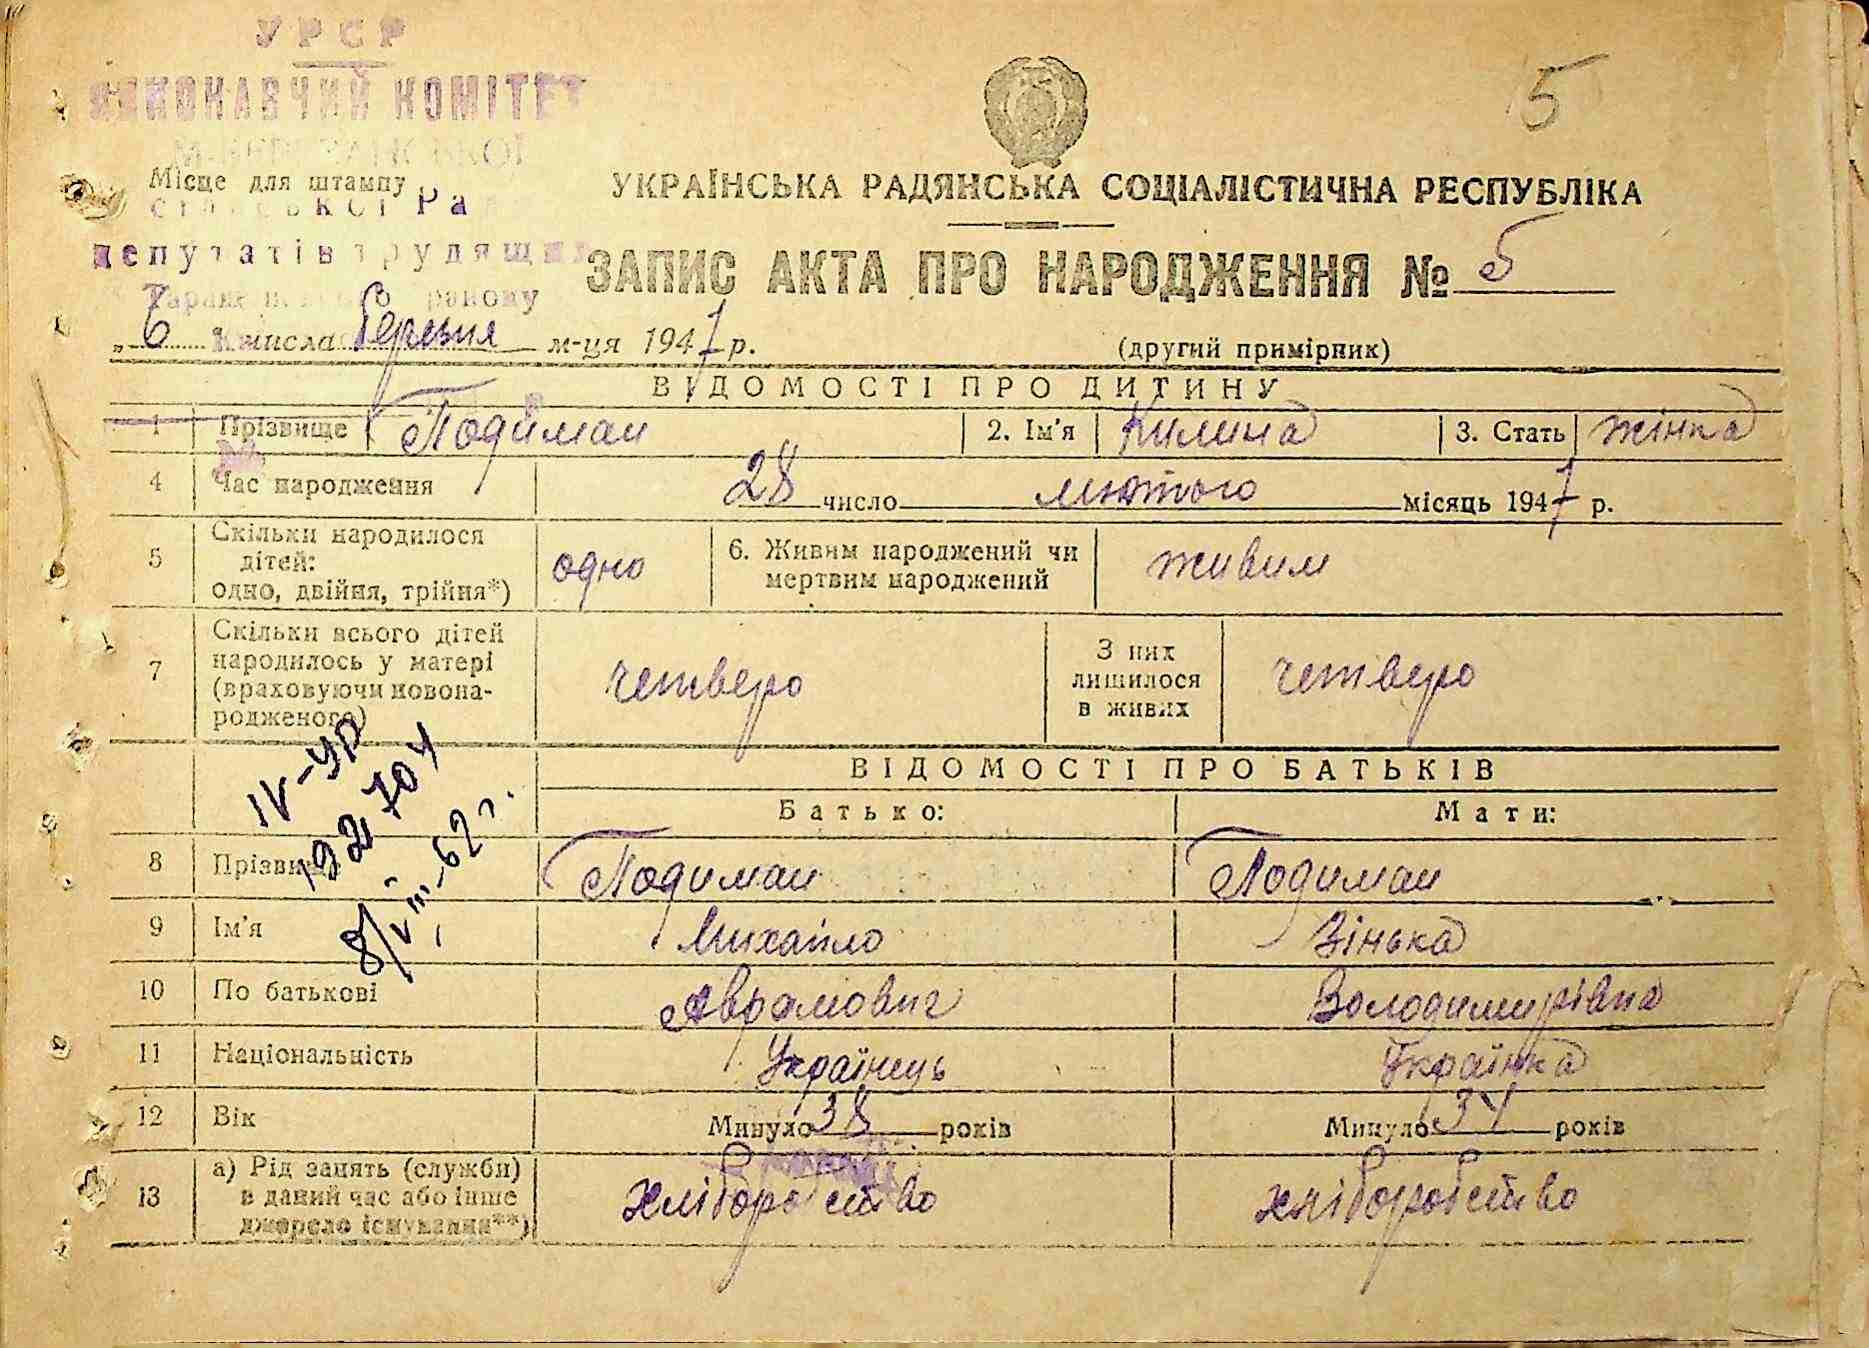 УРСР
ВИКОНАВЧИЙ КОМІТЕТ
5
Місце для штампу
УКРАЇНСЬКА РАДЯНСЬКА СОЦІАЛІСТИЧНА РЕСПУБЛІКА
депутатів трудящих
ЗАПИС АКТА ПРО НАРОДЖЕННЯ № 5
району
„ 6 числа березня м-ця 1947 р.
(другий примірник)
ВІДОМОСТІ ПРО ДИТИНУ
1 Прізвище Подиман 2. Ім'я Килина 3. Стать жінка
4 Час народження 28 число лютого місяць 1947 р.
5 Скільки народилося дітей: одно, двійня, трійня*) одно 6. Живим народжений чи мертвим народжений живим
7 Скільки всього дітей народилось у матері (враховуючи новонародженого) четверо З них лишилося в живих четверо
IV-УР
192704
8/VIII-62 г.
ВІДОМОСТІ ПРО БАТЬКІВ
Батько: Мати:
8 Прізвище Подиман Подиман
9 Ім'я Михайло Зінька
10 По батькові Аврамович Володимирівна
11 Національність Українець Українка
12 Вік Минуло 38 років Минуло 34 років
13 а) Рід занять (служби) в даний час або інше джерело існування**) хліборобство хліборобство